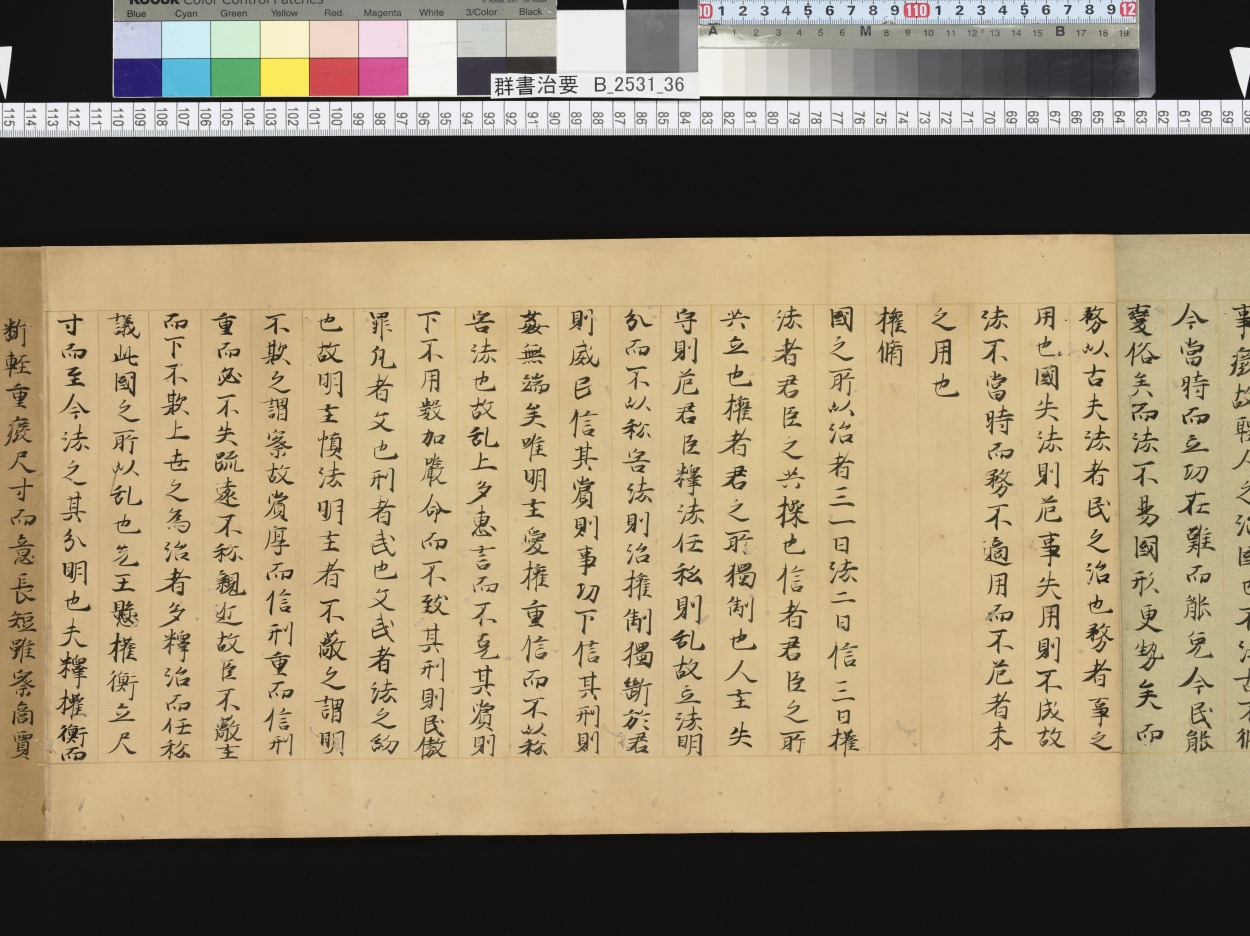 KODAK Color Control Patches
Blue Cyan Green Yellow Red Magenta White 3/Color Black
群書治要 B_2531_36
事癈故聖人之治國也不法古不循
今當時而立功在難而能免今民能
變俗矣而法不易國形更勢矣而
務以古夫法者民之治也務者事之
用也國失法則危事失用則不成故
法不當時而務不適用而不危者未
之用也
權脩
國之所以治者三一曰法二曰信三曰權
法者君臣之共操也信者君臣之所
共立也權者君之所獨制也人主失
守則危君臣釋法任私則乱故立法明
分而不以私害法則治權制獨斷於君
則威民信其賞則事功下信其刑則
姦無端矣唯明主愛權重信而不以私
害法也故乱上多惠言而不克其賞則
下不用數加嚴令而不致其刑則民傲
罪凡者文也刑者武也文武者法之約
也故明主慎法明主者不蔽之謂明
不欺之謂察故賞厚而信刑重而信刑
重而必不失疏遠不私親近故臣不蔽主
而下不欺上世之為治者多釋治而任私
議此國之所以乱也先王懸權衡立尺
寸而至今法之其分明也夫釋權衡而
斷輕重癈尺寸而意長短雖察商賈